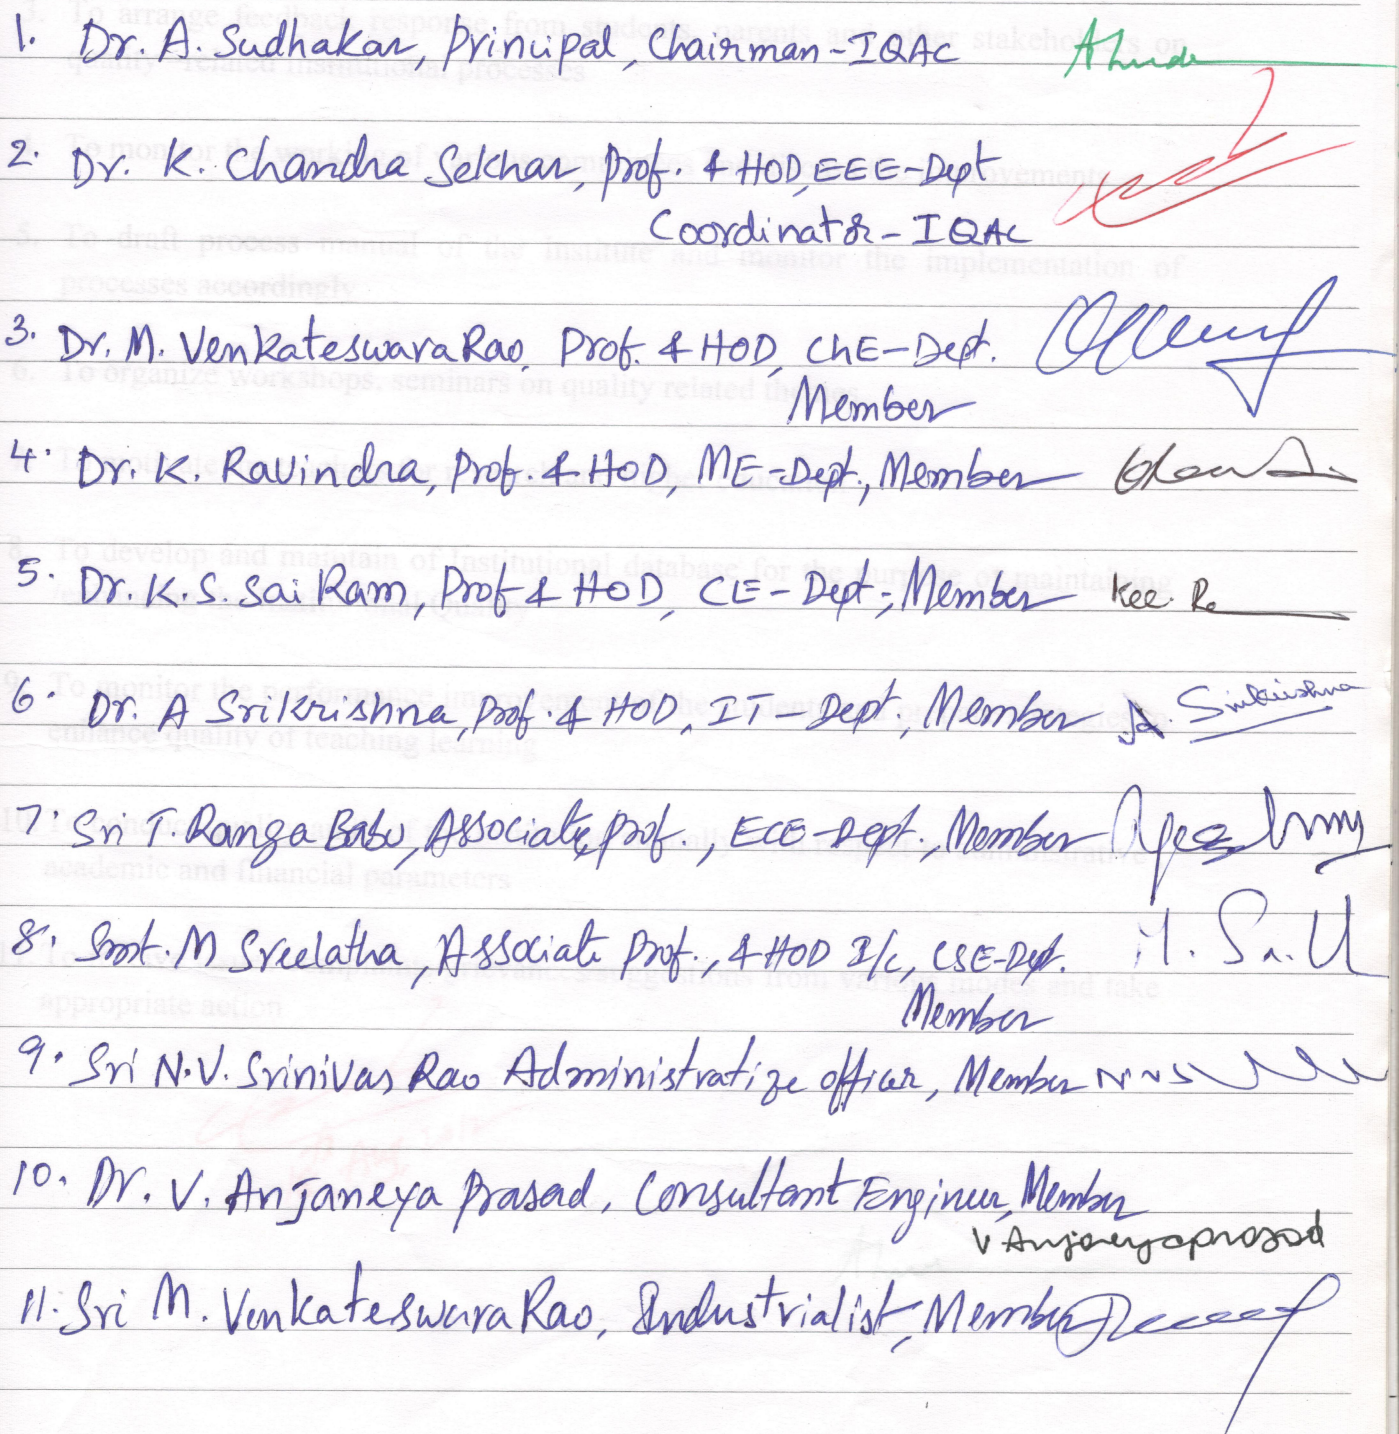 1. Dr. A. Sudhakar, Principal, Chairman-IQAC
2. Dr. K. Chandra Sekhar, Prof. & HOD, EEE-Dept
Coordinator-IQAC
3. Dr. M. Venkateswara Rao, Prof. & HOD, ChE-Dept.
Member
4. Dr. K. Ravindra, Prof. & HOD, ME-Dept., Member
5. Dr. K.S. Sai Ram, Prof & HOD, CE-Dept., Member
6. Dr. A Srikrishna, Prof. & HOD, IT-Dept, Member A Srikrishna
7. Sri T. Ranga Babu, Associate Prof., ECE-Dept., Member
8. Smt. M Sreelatha, Associate Prof., & HOD I/c, CSE-Dept.
Member
9. Sri N.V. Srinivas Rao Administrative officer, Member
10. Dr. V. Anjaneya Prasad, Consultant Engineer, Member
V Anjaneyaprasad
11. Sri M. Venkateswara Rao, Industrialist, Member